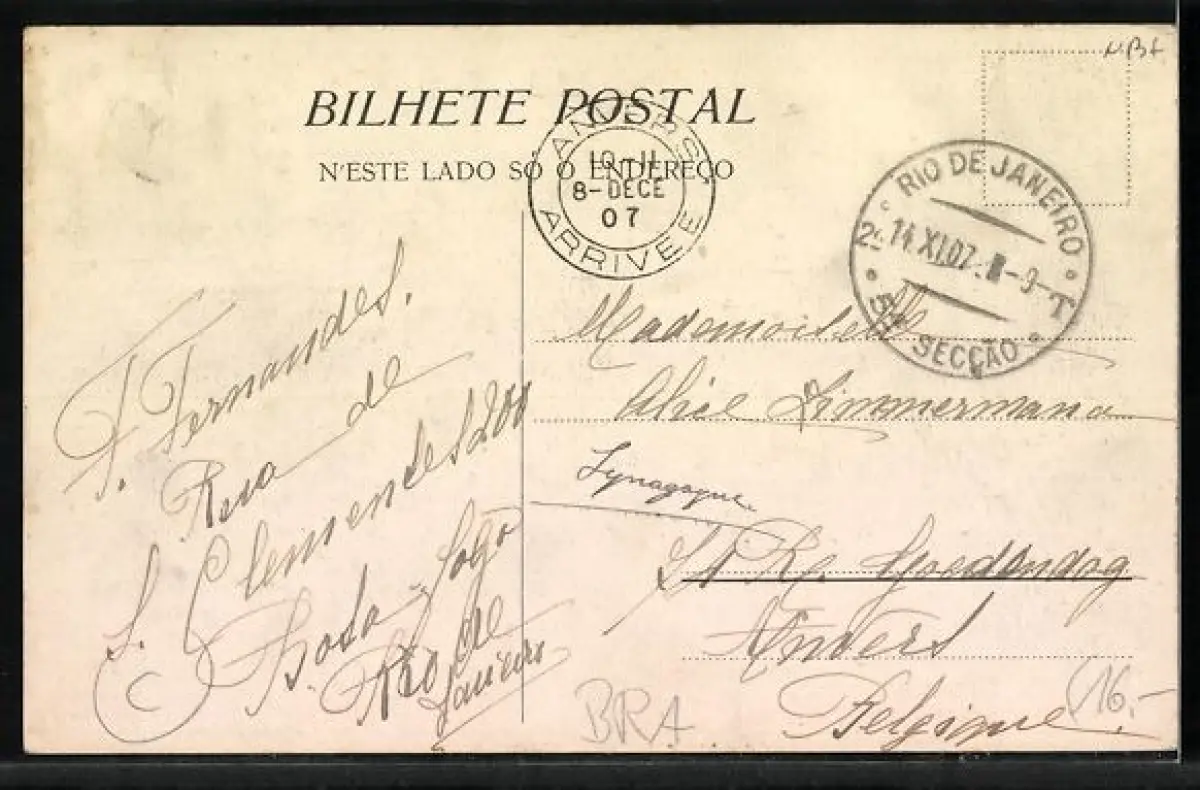 BILHETE POSTAL
N'ESTE LADO SÓ O ENDEREÇO
ANVERS
10-11
8-DECE
07
ARRIVEE
RIO DE JANEIRO
14 XI.07
T
SECÇÃO
F. Fernandes.
Rua de
S. Clemente
Botafogo
Rio de
Janeiro
Mademoiselle
Alice Zimmermann
Synagogue
Anvers
Belgique.
BRA
16.-